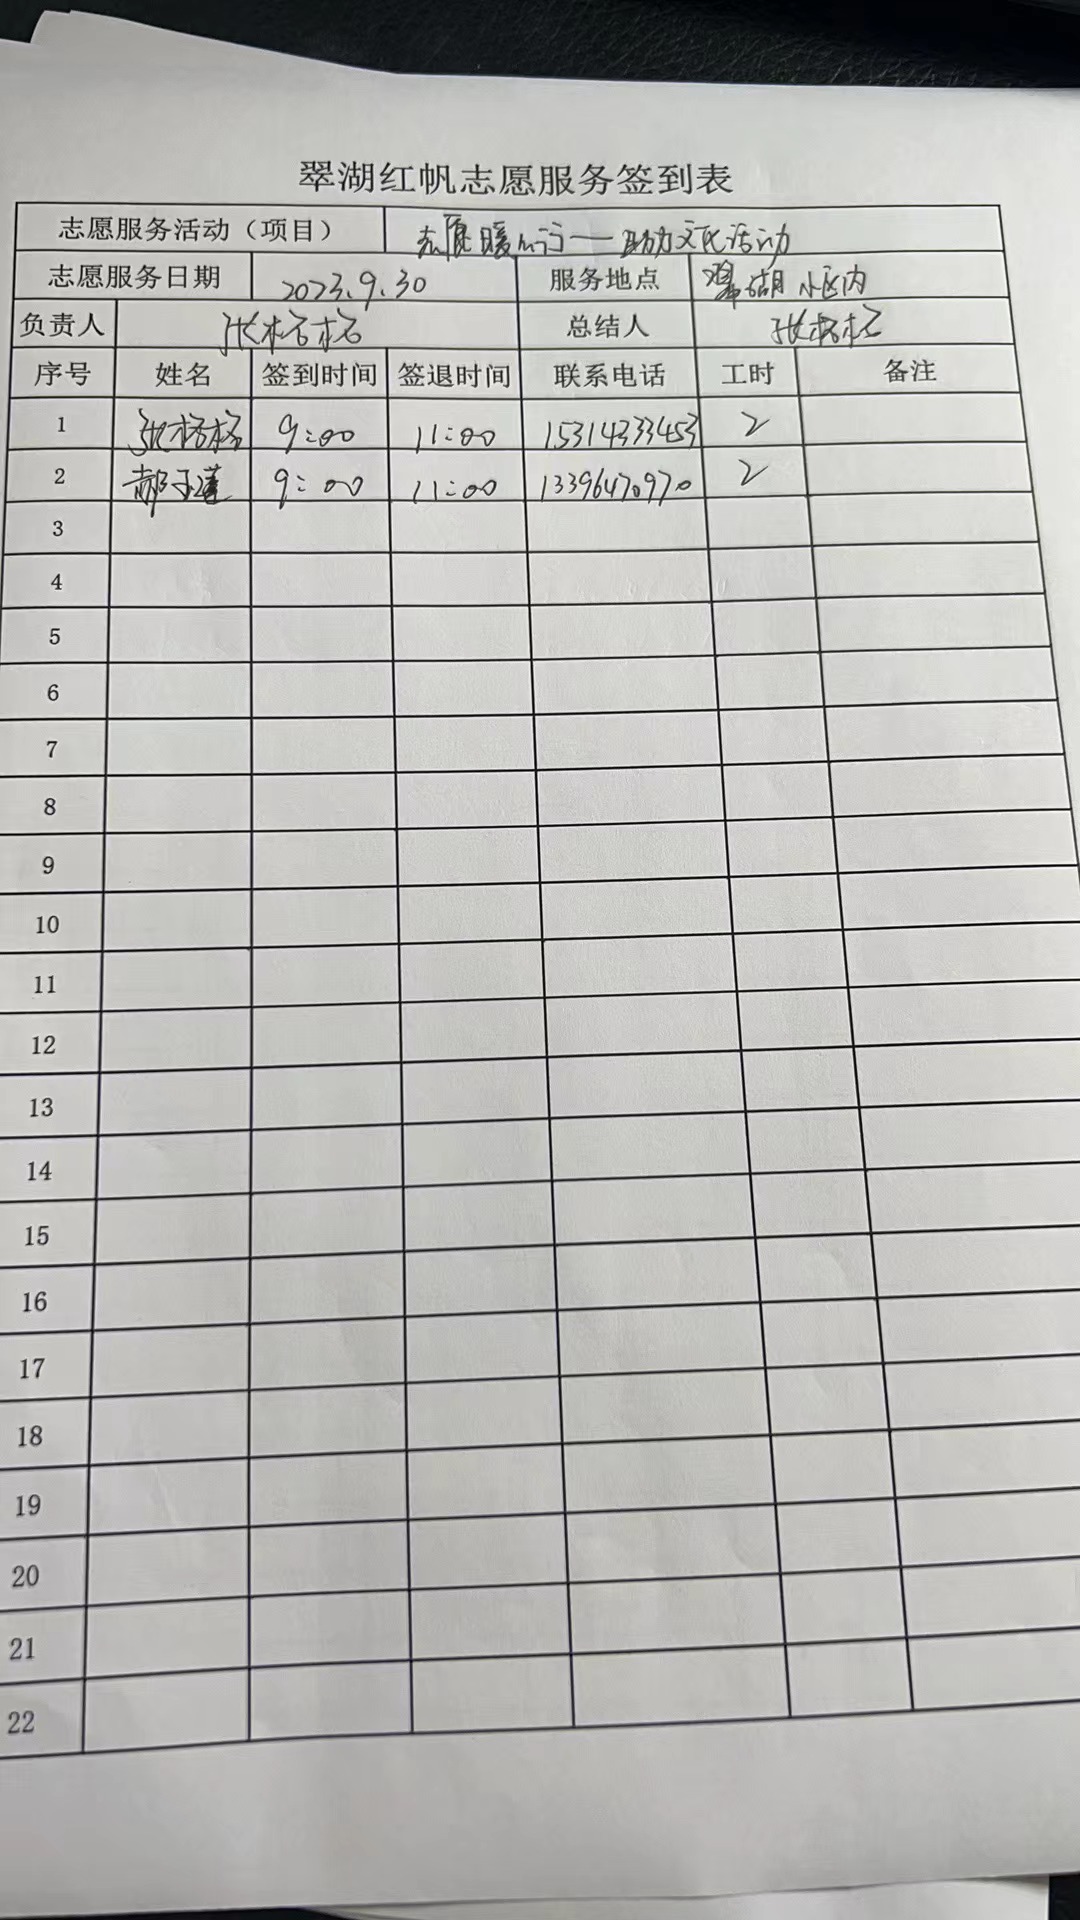 翠湖红帆志愿服务签到表
志愿服务活动（项目） 志愿暖心行——助力文化活动
志愿服务日期 2023.9.30 服务地点 翠湖小区内
负责人 张格格 总结人 张格格
序号 姓名 签到时间 签退时间 联系电话 工时 备注
1 张格格 9:00 11:00 15314333453 2
2 郝子莲 9:00 11:00 13396470970 2
3
4
5
6
7
8
9
10
11
12
13
14
15
16
17
18
19
20
21
22